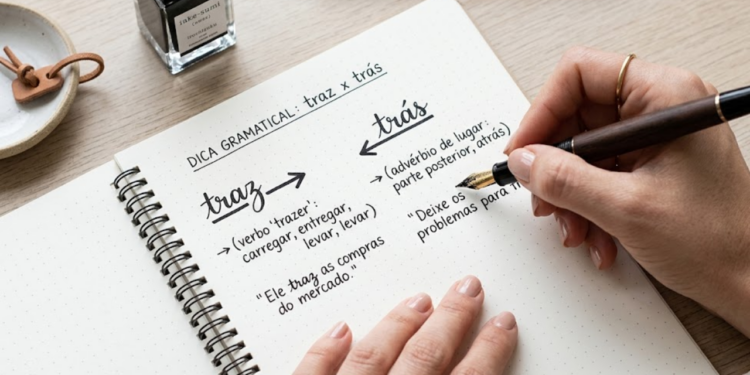 DICA GRAMATICAL: traz x trás
traz →
→ (verbo 'trazer':
carregar, entregar,
levar, levar)
"Ele traz as compras
do mercado."
trás
←
→ (advérbio de lugar:
parte posterior, atrás)
"Deixe os
problemas para